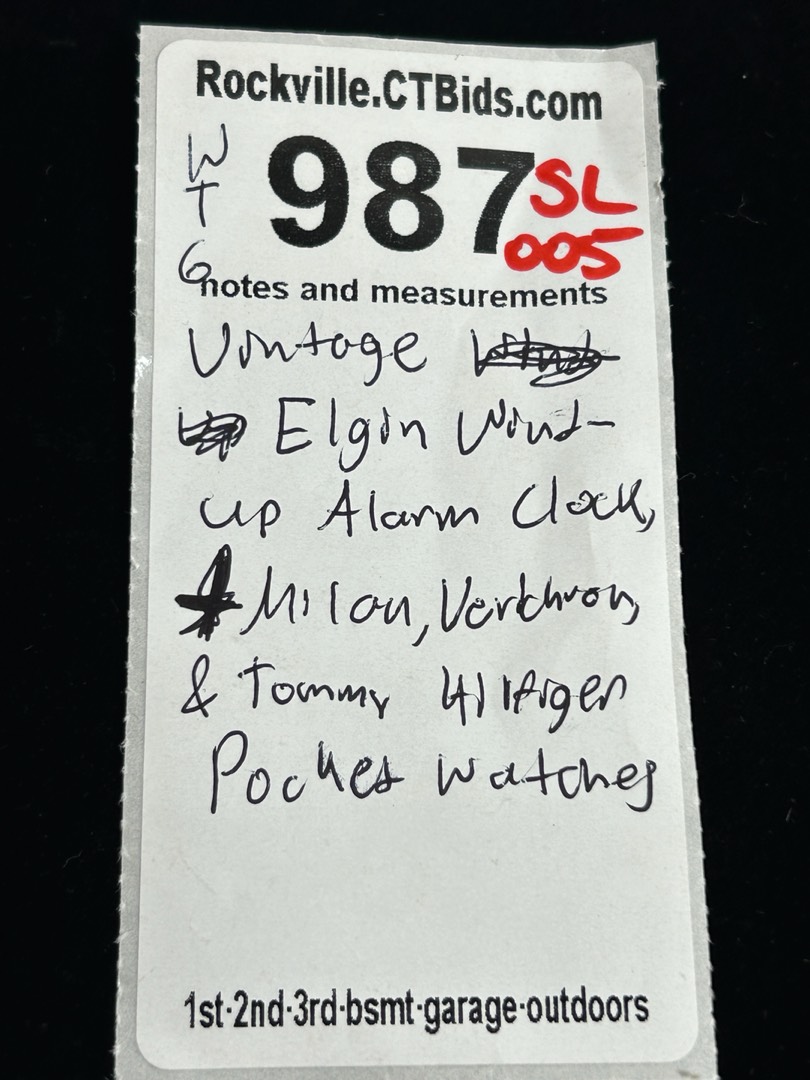 Rockville.CTBids.com
W
T
G
987
SL
005
notes and measurements
Vintage
Elgin Wind-
up Alarm Clock,
Milan, Verchron,
& Tommy Hilfiger
Pocket watches
1st·2nd·3rd·bsmt·garage·outdoors